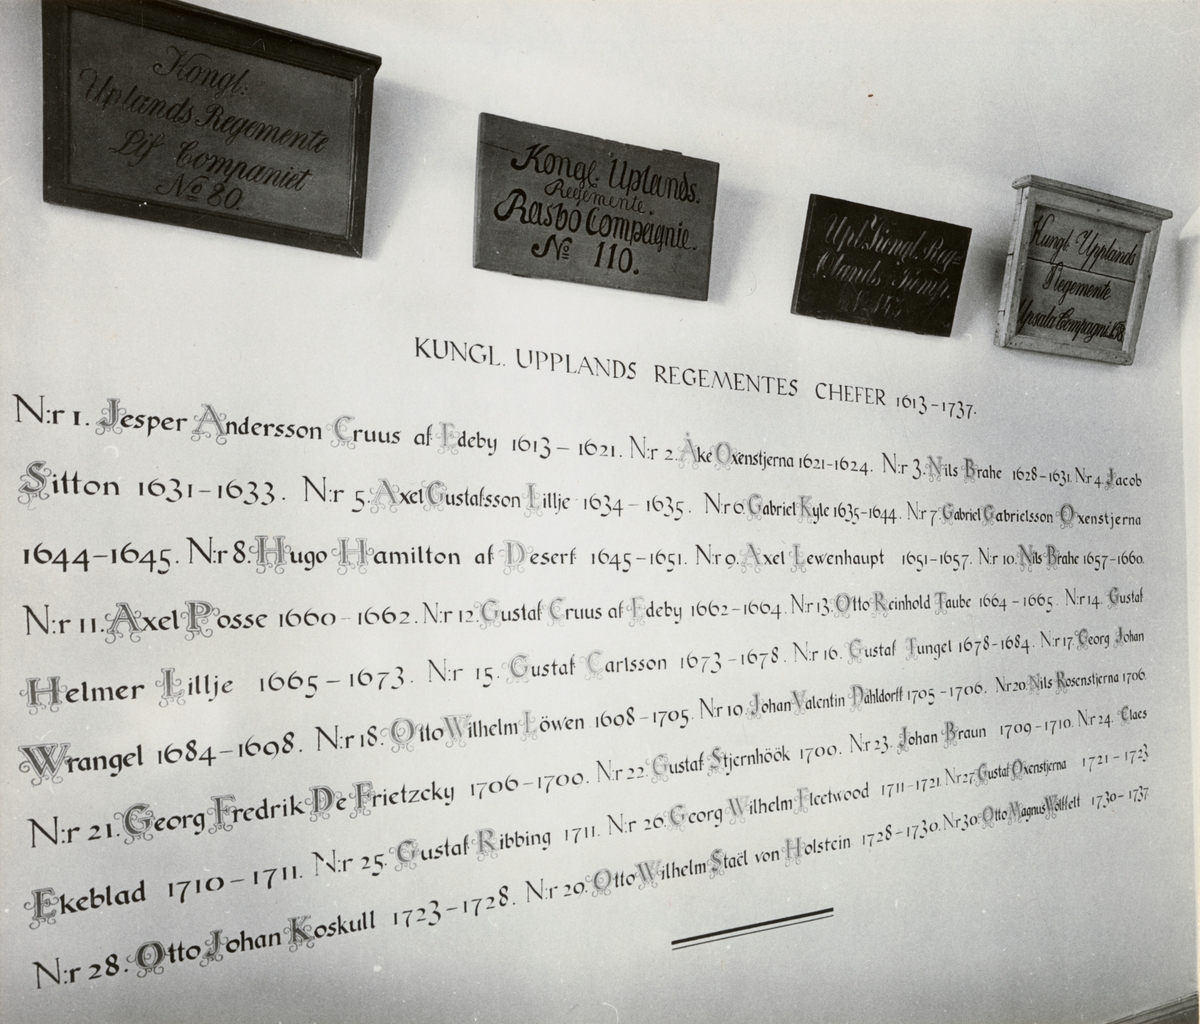 Kongl:
Uplands Regemente
Lif Companiet
No 80.
Kongl. Uplands.
Regemente.
Rasbo Compagnie.
No 110.
Upl. Kongl. Reg=
Olands Komp.
Kungl. Upplands
Regemente
Upsala Compagni.
KUNGL. UPPLANDS REGEMENTES CHEFER 1613–1737.
N:r 1. Jesper Andersson Cruus af Edeby 1613–1621. N:r 2. Åke Oxenstjerna 1621–1624. N:r 3. Nils Brahe 1628–1631. N:r 4. Jacob
Sitton 1631–1633. N:r 5. Axel Gustafsson Lillje 1634–1635. N:r 6. Gabriel Kyle 1635–1644. N:r 7. Gabriel Gabrielsson Oxenstjerna
1644–1645. N:r 8. Hugo Hamilton af Deserf 1645–1651. N:r 9. Axel Lewenhaupt 1651–1657. N:r 10. Nils Brahe 1657–1660.
N:r 11. Axel Posse 1660–1662. N:r 12. Gustaf Cruus af Edeby 1662–1664. N:r 13. Otto Reinhold Taube 1664–1665. N:r 14. Gustaf
Helmer Lillje 1665–1673. N:r 15. Gustaf Carlsson 1673–1678. N:r 16. Gustaf Tungel 1678–1684. N:r 17. Georg Johan
Wrangel 1684–1698. N:r 18. Otto Wilhelm Löwen 1698–1705. N:r 19. Johan Valentin Dahldorff 1705–1706. N:r 20. Nils Rosenstjerna 1706.
N:r 21. Georg Fredrik De Frietzcky 1706–1709. N:r 22. Gustaf Stjernhöök 1709. N:r 23. Johan Braun 1709–1710. N:r 24. Claes
Ekeblad 1710–1711. N:r 25. Gustaf Ribbing 1711. N:r 26. Georg Wilhelm Fleetwood 1711–1721. N:r 27. Gustaf Oxenstjerna 1721–1723
N:r 28. Otto Johan Koskull 1723–1728. N:r 29. Otto Wilhelm Staël von Holstein 1728–1730. N:r 30. Otto Magnus Wolffelt 1730–1737